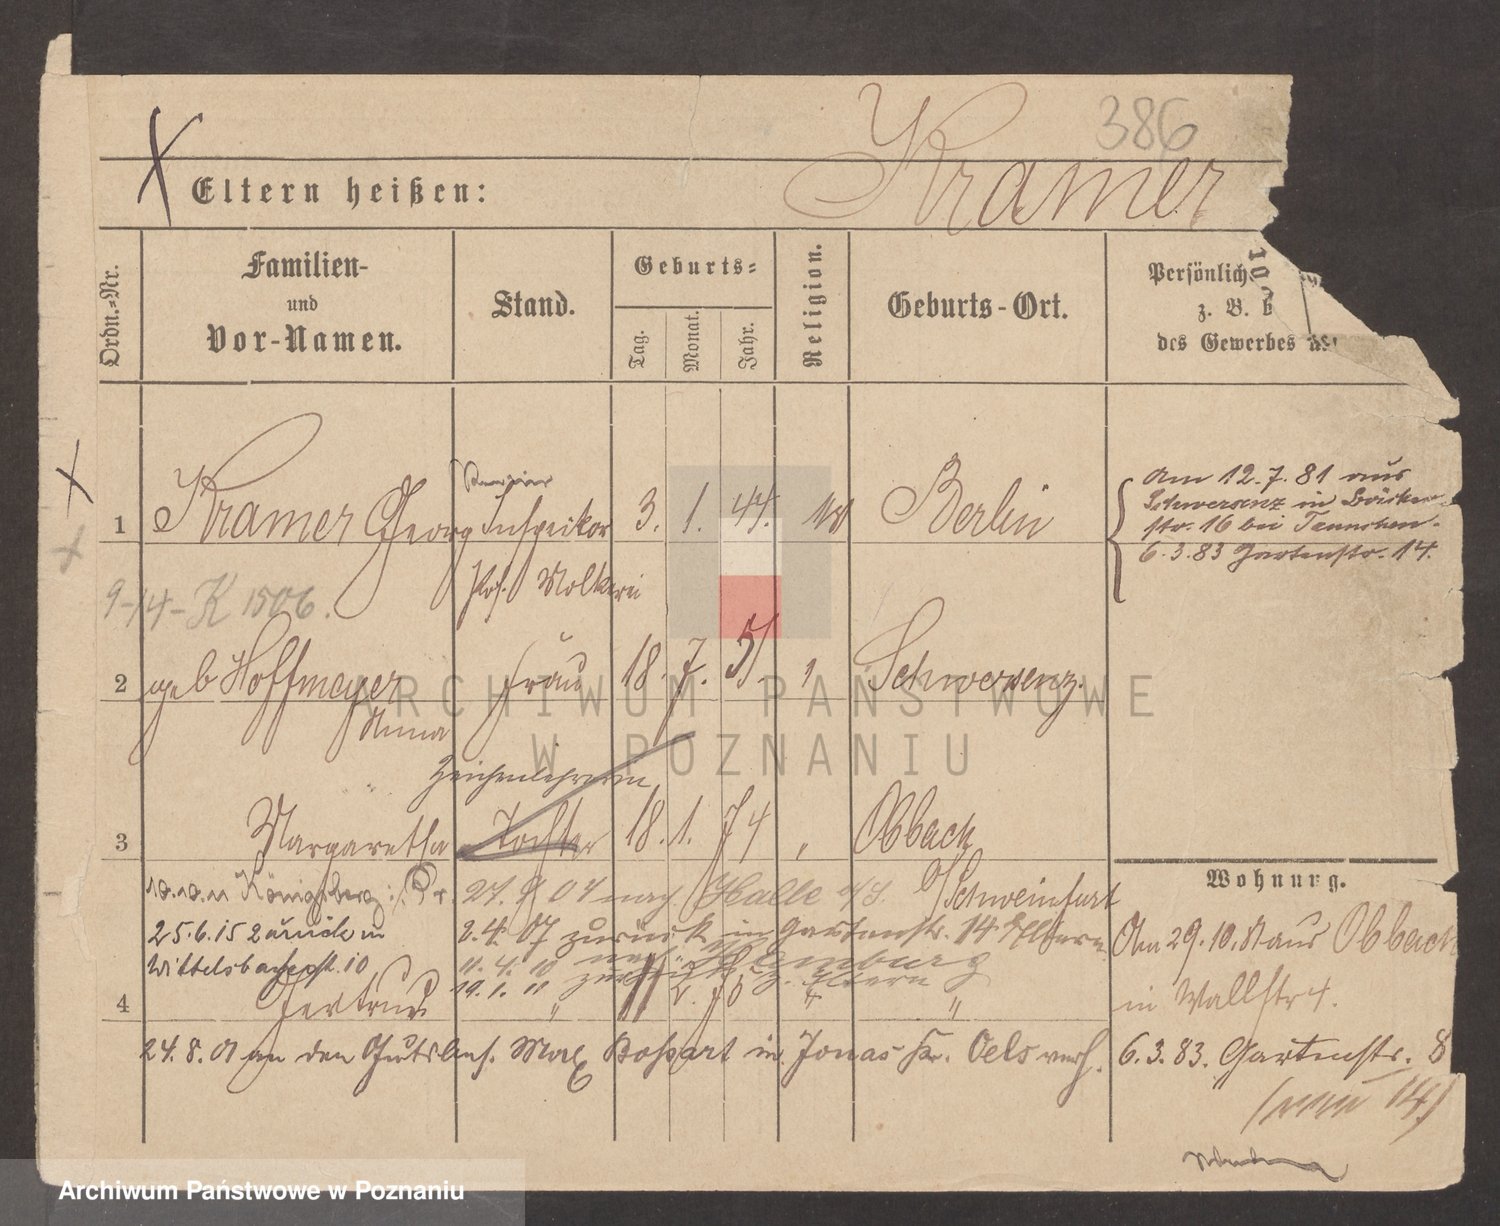 386
Kramer
Eltern heißen:
Ordn.-Nr.
Familien-
und
Vor-Namen.
Stand.
Geburts-
Tag.
Monat.
Jahr.
Religion.
Geburts-Ort.
Persönlich
z. B.
des Gewerbes
1 Kramer Georg Inspektor 3. 1. 44. Berlin
Molkerei
Am 12.7.81 aus
Schwersenz in
str. 16 bei
6.3.83 Gartenstr. 14.
9-14-K 1506.
2 geb Hoffmeyer Frau 18. 7. 51. Schwersenz.
Anna
Zeichenlehrerin
3 Margaretha Tochter 18. 1. 74 " Obbach
Wohnung.
10.10.11 Königsberg i/Pr. 27.9.04 nach Halle a/S. b/Schweinfurt
25.6.15 zurück in 2.4.07 zurück in Gartenstr. 14 Eltern
Wittelsbacherst. 10 11.4.10
19.1.11 zurück z. Eltern
Am 29.10. aus Obbach
in Wallstr 4.
4 Gertrud " "
24.8.01 an den Gutsbes. Max in Jonas Kr. Oels verh.
6.3.83. Gartenstr. 8
(neu 14)
ARCHIWUM PAŃSTWOWE
W POZNANIU
Archiwum Państwowe w Poznaniu